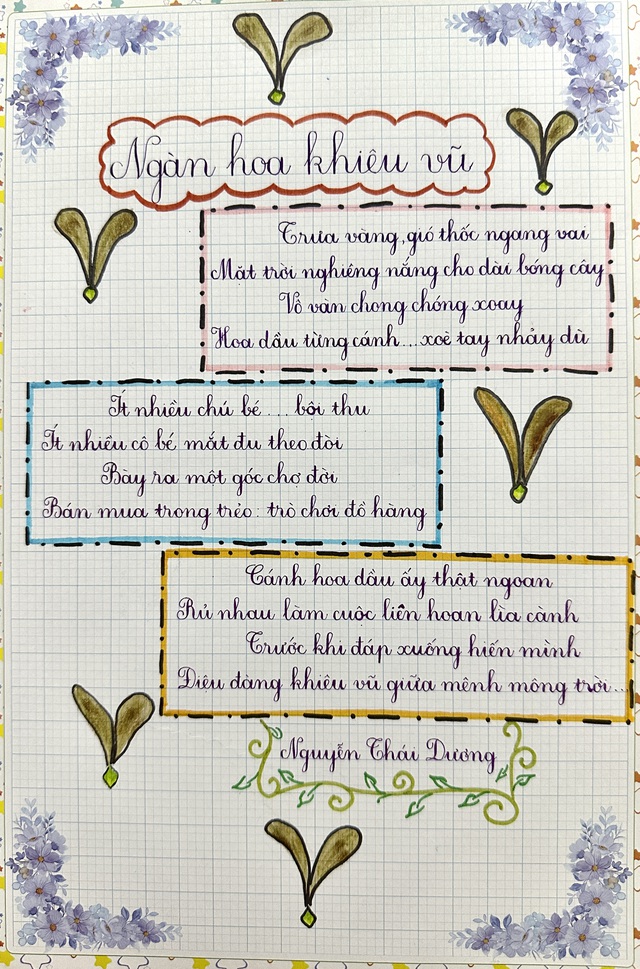 Ngàn hoa khiêu vũ
Trưa vàng, gió thốc ngang vai
Mặt trời nghiêng nắng cho dài bóng cây
Vô vàn chong chóng xoay
Hoa dầu từng cánh... xoè tay nhảy dù
Ít nhiều chú bé.... bội thu
Ít nhiều cô bé mắt đu theo đòi
Bày ra một góc chợ đời
Bán mua trong trẻo: trò chơi đồ hàng
Cánh hoa dầu ấy thật ngoan
Rủ nhau làm cuộc liên hoan lìa cành
Trước khi đáp xuống hiến mình
Diệu dàng khiêu vũ giữa mênh mông trời...
Nguyễn Thái Dương